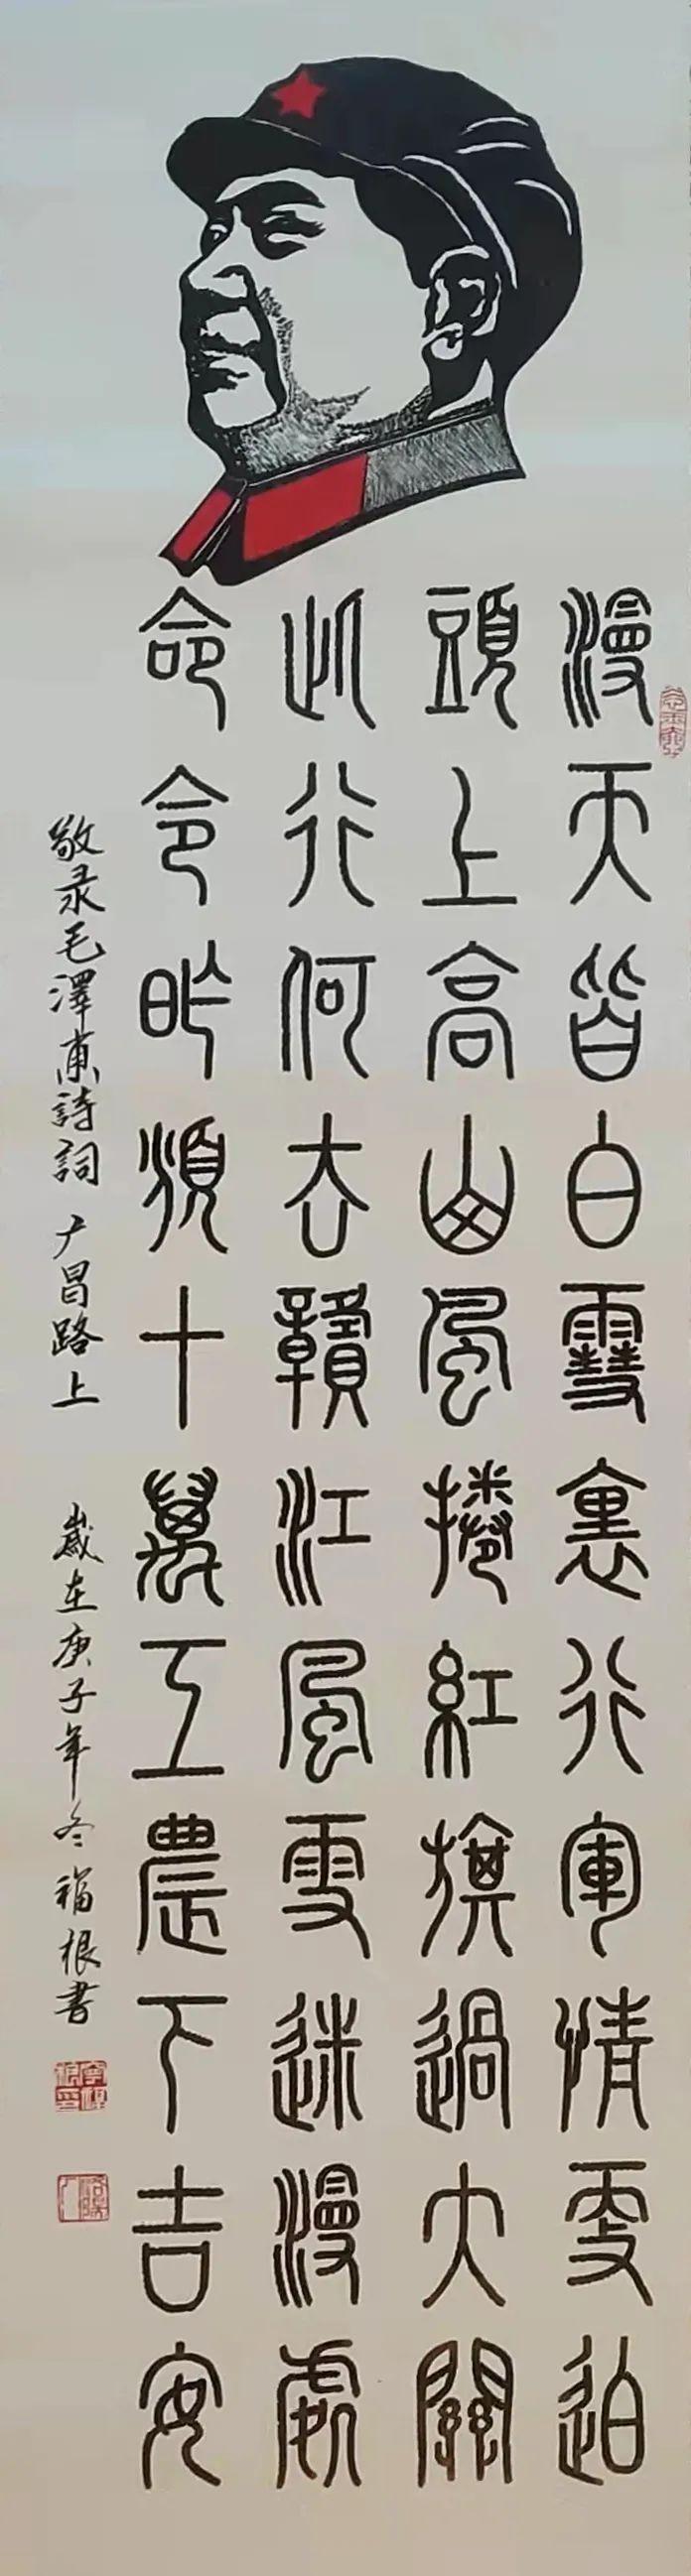 漫天皆白雪裏行軍情更迫
頭上高山風捲紅旗過大關
此行何去贛江風雪迷漫處
命令昨頒十萬工農下吉安
敬录毛澤東詩詞 广昌路上 歲在庚子年冬福根書